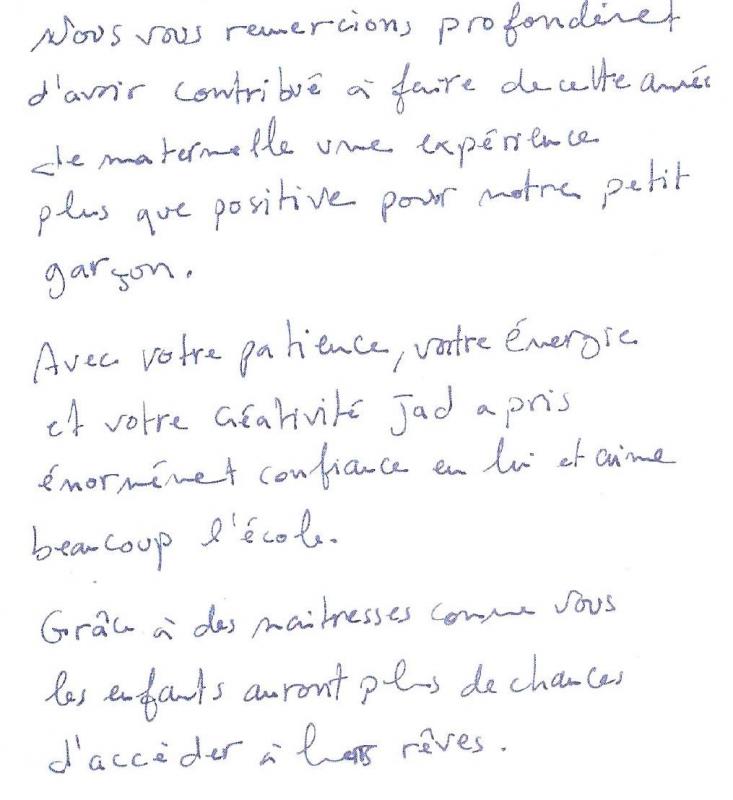 Nous vous remercions profondément
d'avoir contribué à faire de cette année
de maternelle une expérience
plus que positive pour notre petit
garçon.
Avec votre patience, votre énergie
et votre créativité Jad a pris
énormément confiance en lui et aime
beaucoup l'école.
Grâce à des maitresses comme vous
les enfants auront plus de chances
d'accèder à leurs rêves.